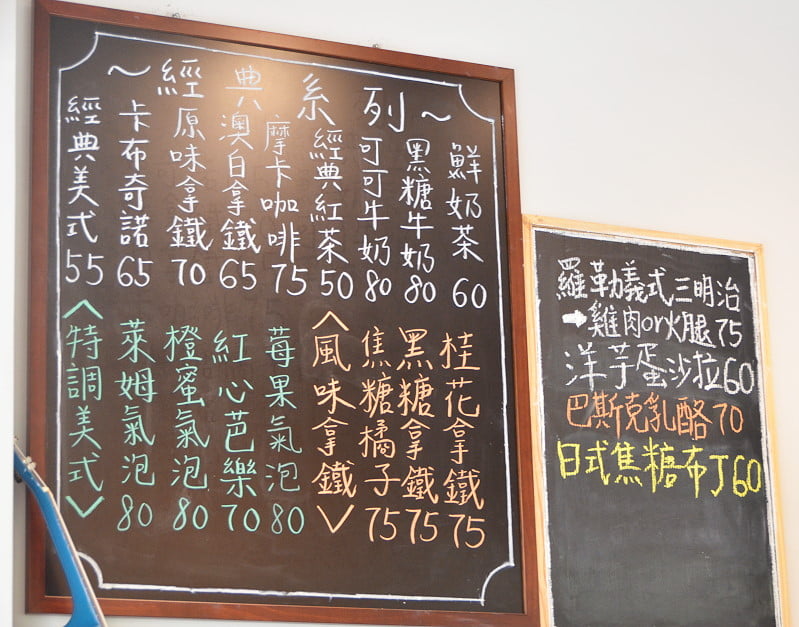 ～經典系列～
經典美式 55
卡布奇諾 65
原味拿鐵 70
澳白拿鐵 65
摩卡咖啡 75
經典紅茶 50
可可牛奶 80
黑糖牛奶 80
鮮奶茶 60
<特調美式>
萊姆氣泡 80
橙蜜氣泡 80
紅心芭樂 70
莓果氣泡 80
<風味拿鐵>
焦糖橘子 75
黑糖拿鐵 75
桂花拿鐵 75
羅勒義式三明治
➡雞肉or火腿75
洋芋蛋沙拉60
巴斯克乳酪 70
日式焦糖布丁60